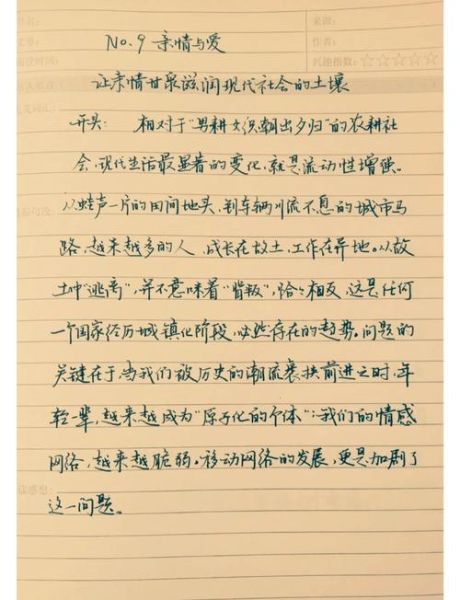 No.9 亲情与爱
让亲情甘泉滋润现代社会的土壤
开头: 相对于"男耕女织朝出夕归"的农耕社
会,现代生活最显著的变化,就是流动性增强。
从蛙声一片的田间地头,到车辆川流不息的城市马
路,越来越多的人,成长在故土,工作在异地。从故
土中"逃离",并不意味着"背叛",恰恰相反,这是任何
一个国家经历城镇化阶段,必然存在的趋势。问题的
关键在于,当我们被历史的潮流裹挟前进之时,年
轻一辈,越来越成为"原子化的个体";我们的情感
网络,越来越脆弱。移动网络的发展,更是加剧了
这一问题。